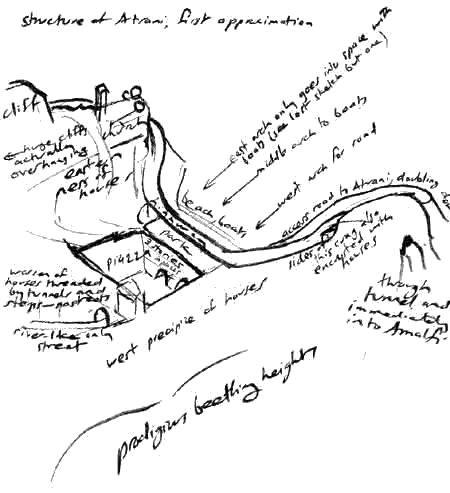 structure of Atrani, first approximation
east arch only goes into space with
boats (see last sketch but one)
middle arch to boats
west arch for road
access road to Atrani, doubling
cliff
church
huge cliffs
actually
overhanging
easter
ness of
houses
beach boats
park
piazza
sides of
this crag also
encrypted with
houses
through
tunnel and
immediately
into Amalfi
warren of
houses threaded
by tunnels and
steps—no streets
river-like only
street
west precipice of houses
prodigious beetling heights